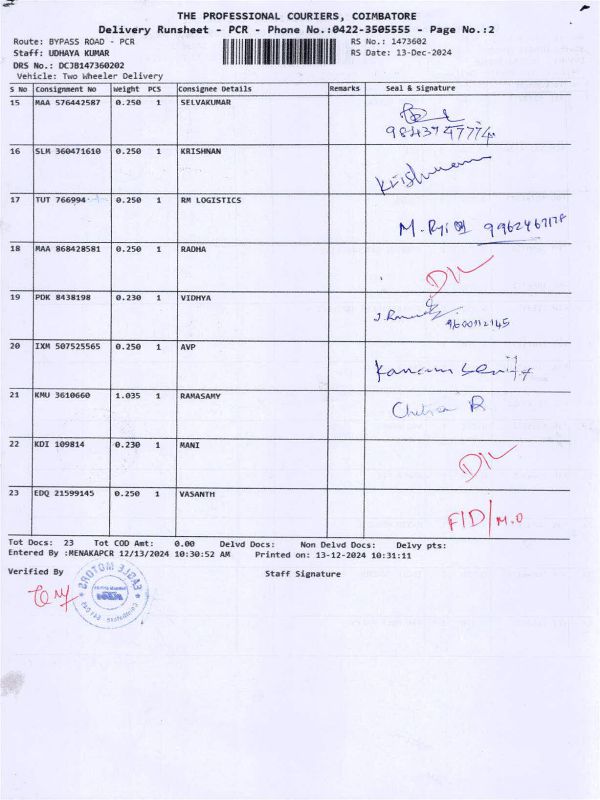 THE PROFESSIONAL COURIERS, COIMBATORE
Delivery Runsheet - PCR - Phone No.:0422-3505555 - Page No.:2
Route: BYPASS ROAD - PCR RS No.: 1473602
Staff: UDHAYA KUMAR RS Date: 13-Dec-2024
DRS No.: DCJB147360202
Vehicle: Two Wheeler Delivery
S No Consignment No Weight PCS Consignee Details Remarks Seal & Signature
15 MAA 576442587 0.250 1 SELVAKUMAR
9843747774
16 SLM 360471610 0.250 1 KRISHNAN
Krishnan
17 TUT 766994 0.250 1 RM LOGISTICS
18 MAA 868428581 0.250 1 RADHA
19 PDK 8438198 0.230 1 VIDHYA
9600112145
20 IXM 507525565 0.250 1 AVP
21 KMU 3610660 1.035 1 RAMASAMY
22 KDI 109814 0.230 1 MANI
23 EDQ 21599145 0.250 1 VASANTH
Tot Docs: 23 Tot COD Amt: 0.00 Delvd Docs: Non Delvd Docs: Delvy pts:
Entered By :MENAKAPCR 12/13/2024 10:30:52 AM Printed on: 13-12-2024 10:31:11
Verified By Staff Signature
EAGLE MOTORS